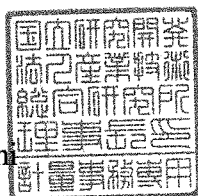 国立研究開発
法人産業技術
総合研究所
理事長印
計量事務専用